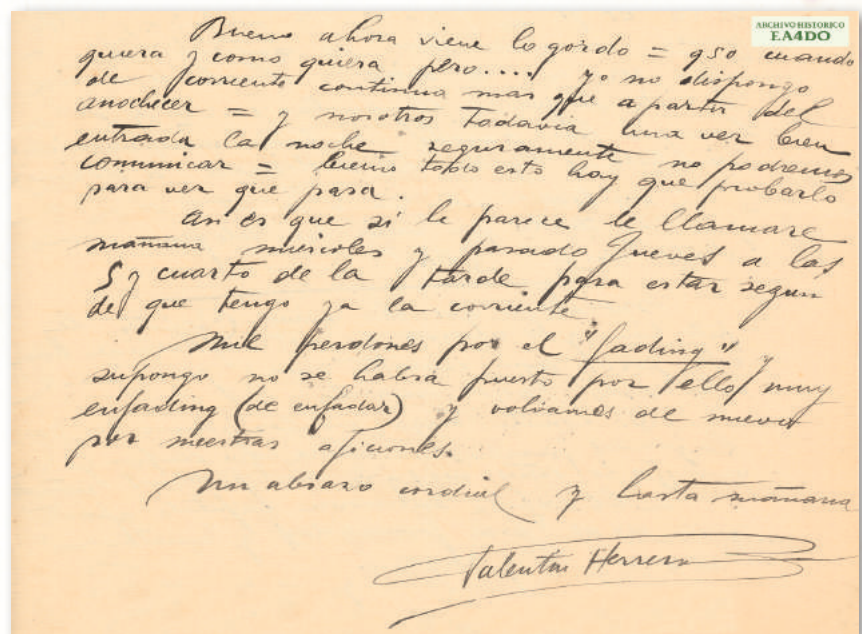 ARCHIVO HISTORICO
EA4DO
Bueno ahora viene lo gordo = qso cuando
quiera y como quiera pero.... yo no dispongo
de corriente continua mas que a partir del
anochecer = y nosotros todavia una vez bien
entrada la noche seguramente no podremos
comunicar = bueno todo esto hay que probarlo
para ver que pasa.
Asi es que si le parece le llamare
mañana miercoles y pasado Jueves a las
5 y cuarto de la tarde para estar segun
de que tengo ya la corriente
Mil perdones por el "fading" y
supongo no se habra puesto por ello muy
enfading (de enfadar) y volvamos de nuevo
por nuestras aficiones.
Un abrazo cordial y hasta mañana
Valentin Herrero